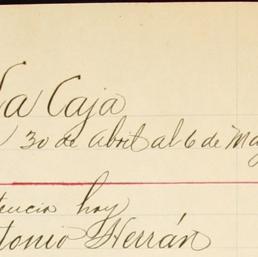 la Caja
30 de Abril al 6 de May
tencia hoy
tonio Herrán